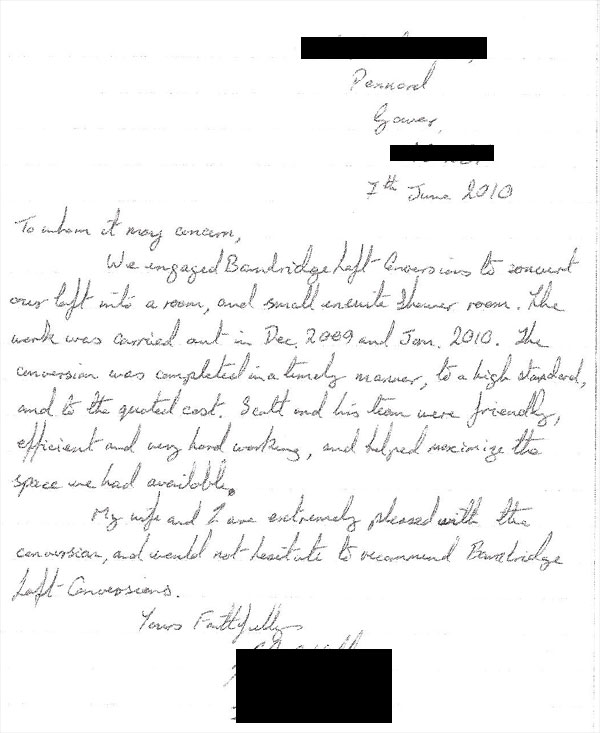 Pennard
Gower,
7th June 2010
To whom it may concern,
We engaged Bambridge Loft Conversions to convert
our loft into a room, and small ensuite shower room. The
work was carried out in Dec. 2009 and Jan. 2010. The
conversion was completed in a timely manner, to a high standard,
and to the quoted cost. Scott and his team were friendly,
efficient and very hard working, and helped maximize the
space we had available.
My wife and I are extremely pleased with the
conversion, and would not hesitate to recommend Bambridge
Loft Conversions.
Yours Faithfully